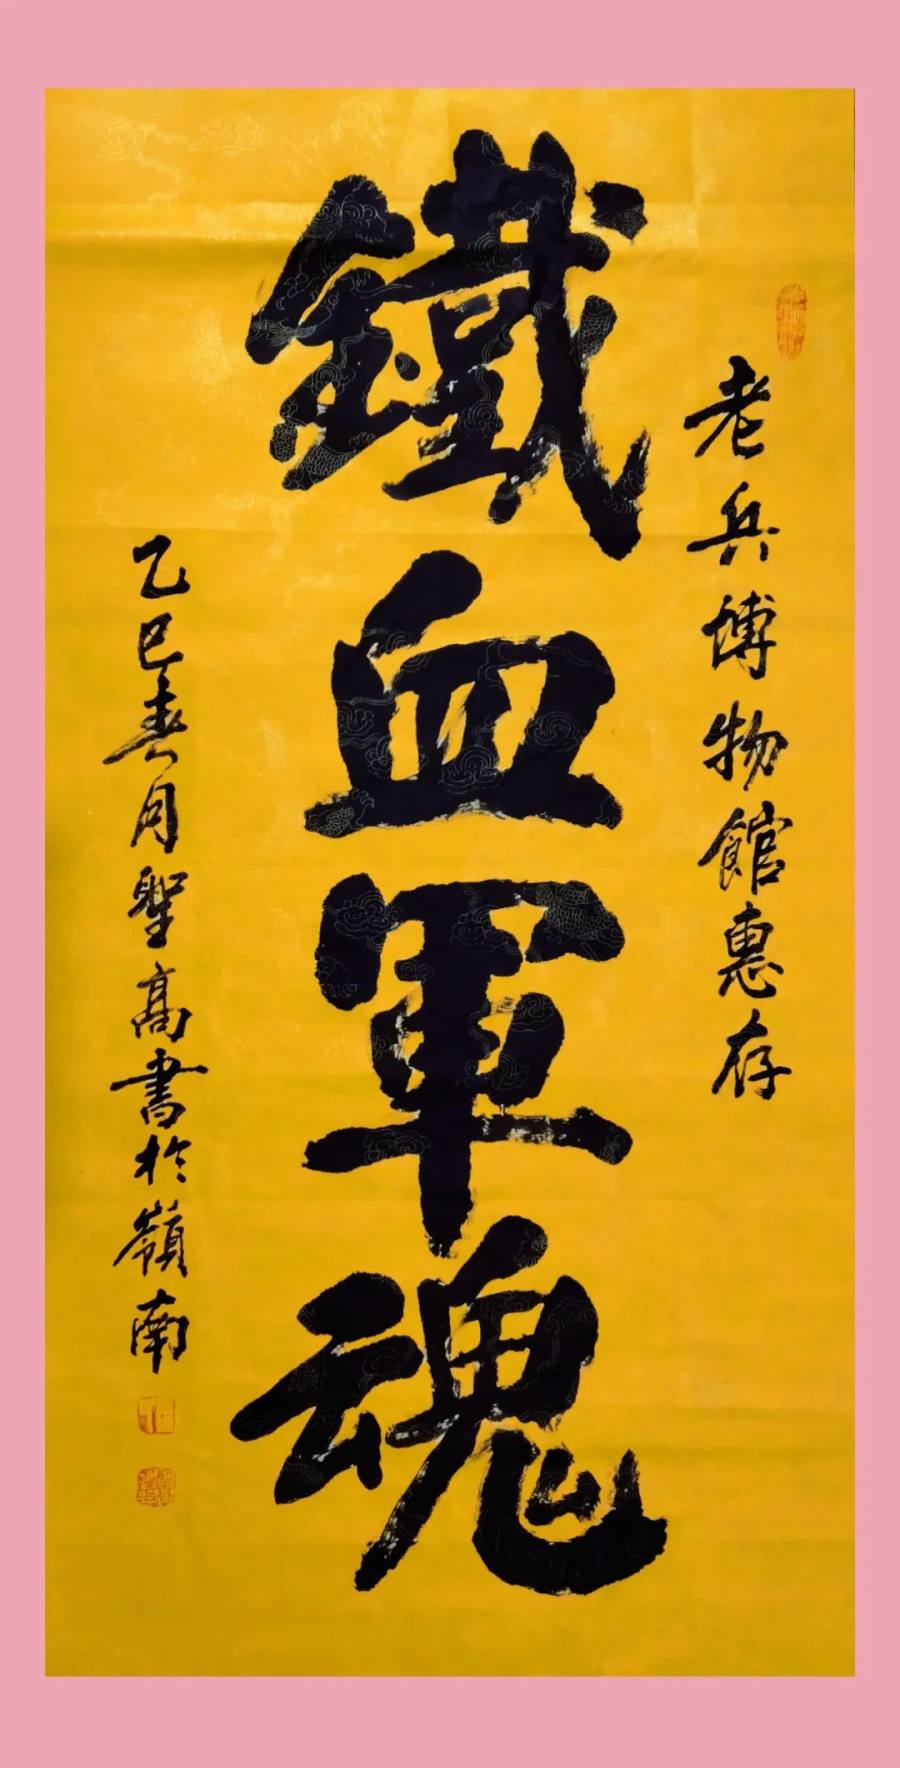 老兵博物館惠存
鐵血軍魂
乙巳春月聖高書於嶺南